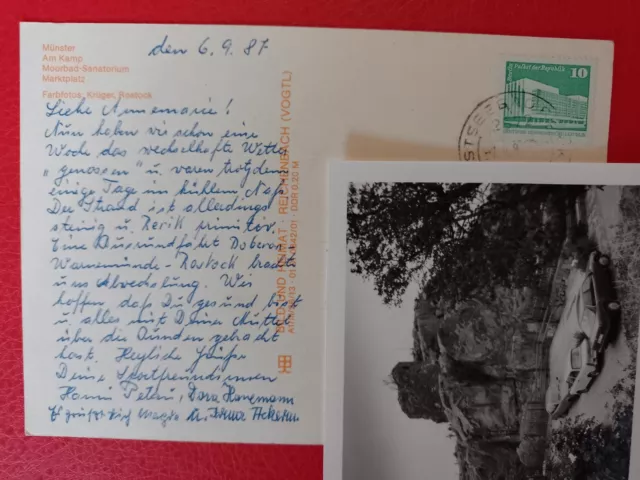 Münster
Am Kamp
Moorbad-Sanatorium
Marktplatz
Farbfotos: Krüger, Rostock
den 6.9.87
Liebe Annemarie!
Nun haben wir schon eine
Woche das wechselhafte Wetter
„genossen" u. waren trotzdem
einige Tage im kühlen Naß.
Der Strand ist allerdings
steinig u. Rerik primitiv.
Eine Busrundfahrt Doberan
Warnemünde - Rostock brachte
uns Abwechslung. Wir
hoffen, daß Du gesund bist
u alles mit Deiner Mutter
über die Runden gebracht
hast. Herzliche Grüße
Deine Sportfreundinnen
Hanni Peters, Dora Hanemann
Es grüßt Dich Magda u. Irma
BILD UND HEIMAT · REICHENBACH (VOGTL)
DDR 0,20 M
Palast der Republik
10